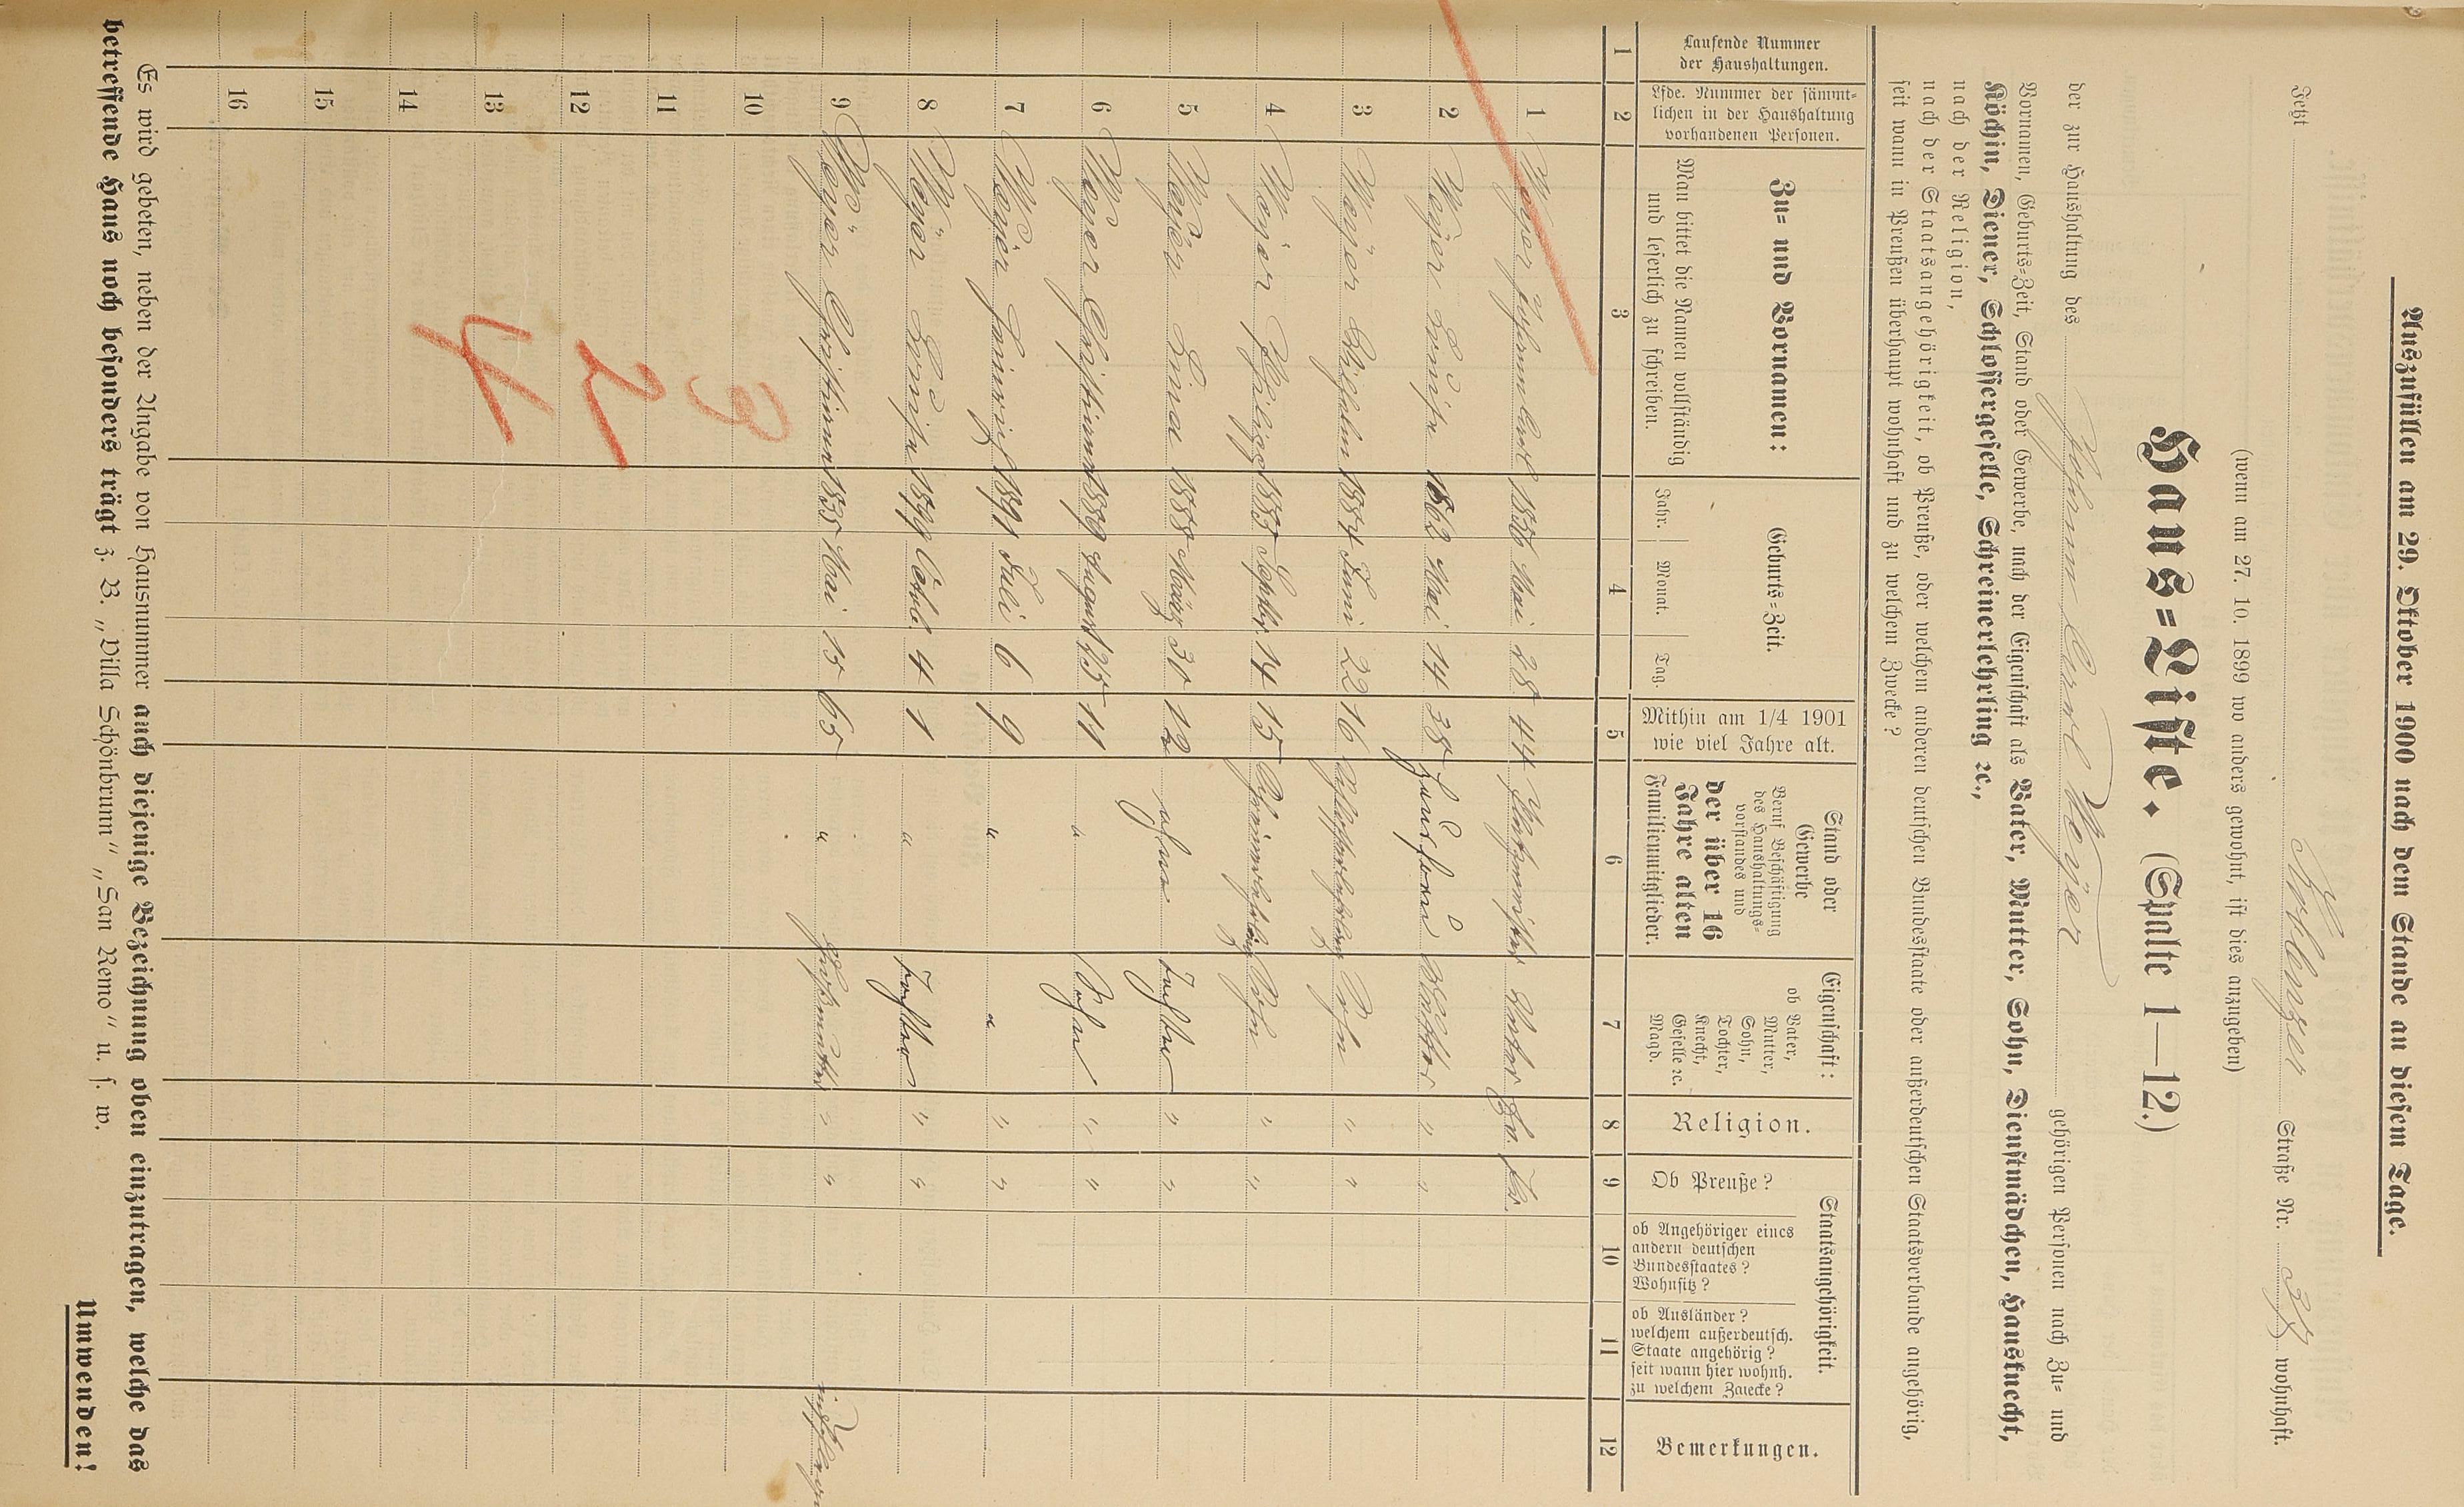 Auszufüllen am 29. Oktober 1900 nach dem Stande an diesem Tage.
Jetzt Koblenzer Straße Nr. wohnhaft.
(wenn am 27. 10. 1899 wo anders gewohnt, ist dies anzugeben)
Haus-Liste. (Spalte 1—12.)
der zur Haushaltung des Johann Carl Meyer gehörigen Personen nach Zu- und
Vornamen, Geburts-Zeit, Stand oder Gewerbe, nach der Eigenschaft als Vater, Mutter, Sohn, Dienstmädchen, Hausknecht,
Köchin, Diener, Schlossergeselle, Schreinerlehrling ec.,
nach der Religion,
nach der Staatsangehörigkeit, ob Preuße, oder welchem anderen deutschen Bundesstaate oder außerdeutschen Staatsverbande angehörig,
seit wann in Preußen überhaupt wohnhaft und zu welchem Zwecke?
Laufende Nummer der Haushaltungen.
Lfde. Nummer der sämmt-
lichen in der Haushaltung
vorhandenen Personen.
Zu- und Vornamen:
Man bittet die Namen vollständig
und leserlich zu schreiben.
Geburts-Zeit.
Jahr. Monat. Tag.
Mithin am 1/4 1901
wie viel Jahre alt.
Stand oder
Gewerbe
Beruf Beschäftigung
des Haushaltungs-
vorstandes und
der über 16
Jahre alten
Familienmitglieder.
Eigenschaft:
ob Vater,
Mutter,
Sohn,
Tochter,
Knecht,
Geselle ec.
Magd.
Religion.
Staatsangehörigkeit.
Ob Preuße?
ob Angehöriger eines
andern deutschen
Bundesstaates?
Wohnsitz?
ob Ausländer?
welchem außerdeutsch.
Staate angehörig?
seit wann hier wohnh.
zu welchem Zwecke?
Bemerkungen.
1 2 3 4 5 6 7 8 9 10 11 12
1 Meyer Johann Carl 1856 Mai 28 44 Vater Ev. Pr.
2 Meyer Louise 1862 Mai 14 38 Hausfrau Mutter " "
3 Meyer Wilhelm 1884 Juni 22 16 Sohn " "
4 Meyer Philipp 1885 Septbr. 14 15 Sohn " "
5 Meyer Lina 1888 März 30 12 ohne Tochter " "
6 Meyer Christian 1889 August 25 11 " Sohn " "
7 Meyer Heinrich 1891 Juli 6 9 " " " "
8 Meyer Louise 1899 Octob. 4 1 " Tochter " "
9 Meyer Christiane 1835 Mai 15 65 " Großmutter " "
10
11
12
13
14
15
16
3
2
4
Es wird gebeten, neben der Angabe von Hausnummer auch diejenige Bezeichnung oben einzutragen, welche das
betreffende Haus noch besonders trägt z. B. „Villa Schönbrunn" „San Remo" u. s. w.
Umwenden!